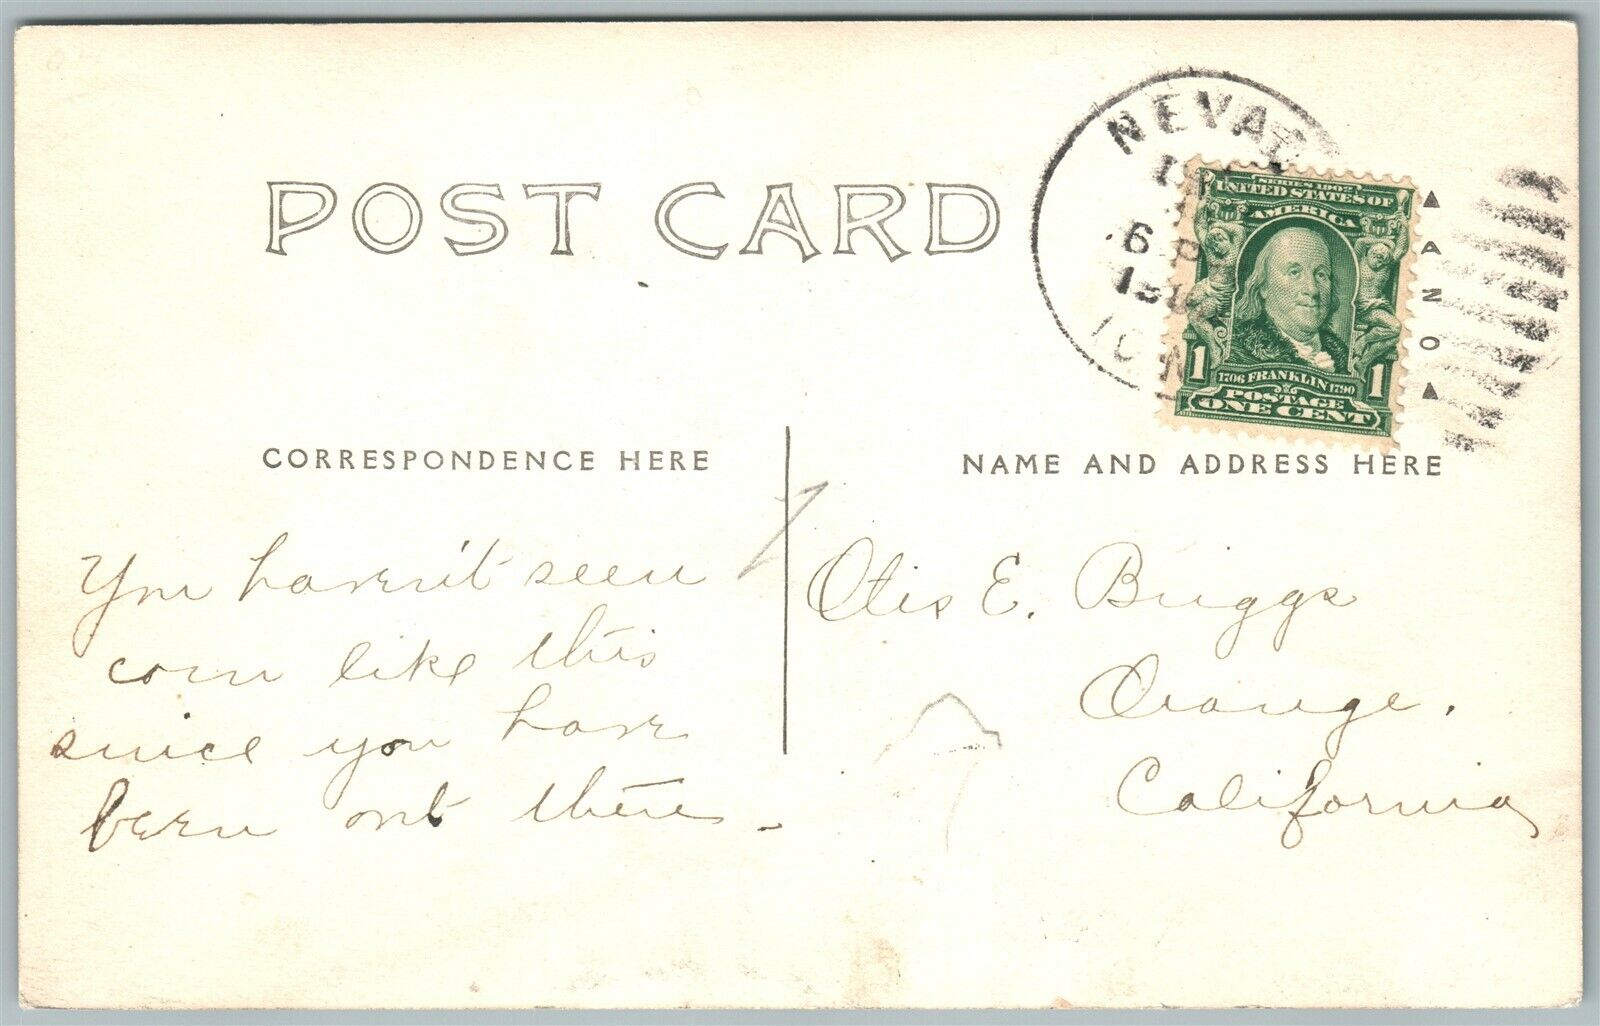 POST CARD
NEVAD
6 P
IOW
SERIES 1902
UNITED STATES OF
AMERICA
1 1
1706 FRANKLIN 1790
POSTAGE
ONE CENT
AZO
CORRESPONDENCE HERE
NAME AND ADDRESS HERE
You haven't seen
corn like this
since you have
been out there.
Otis E. Briggs
Orange.
California